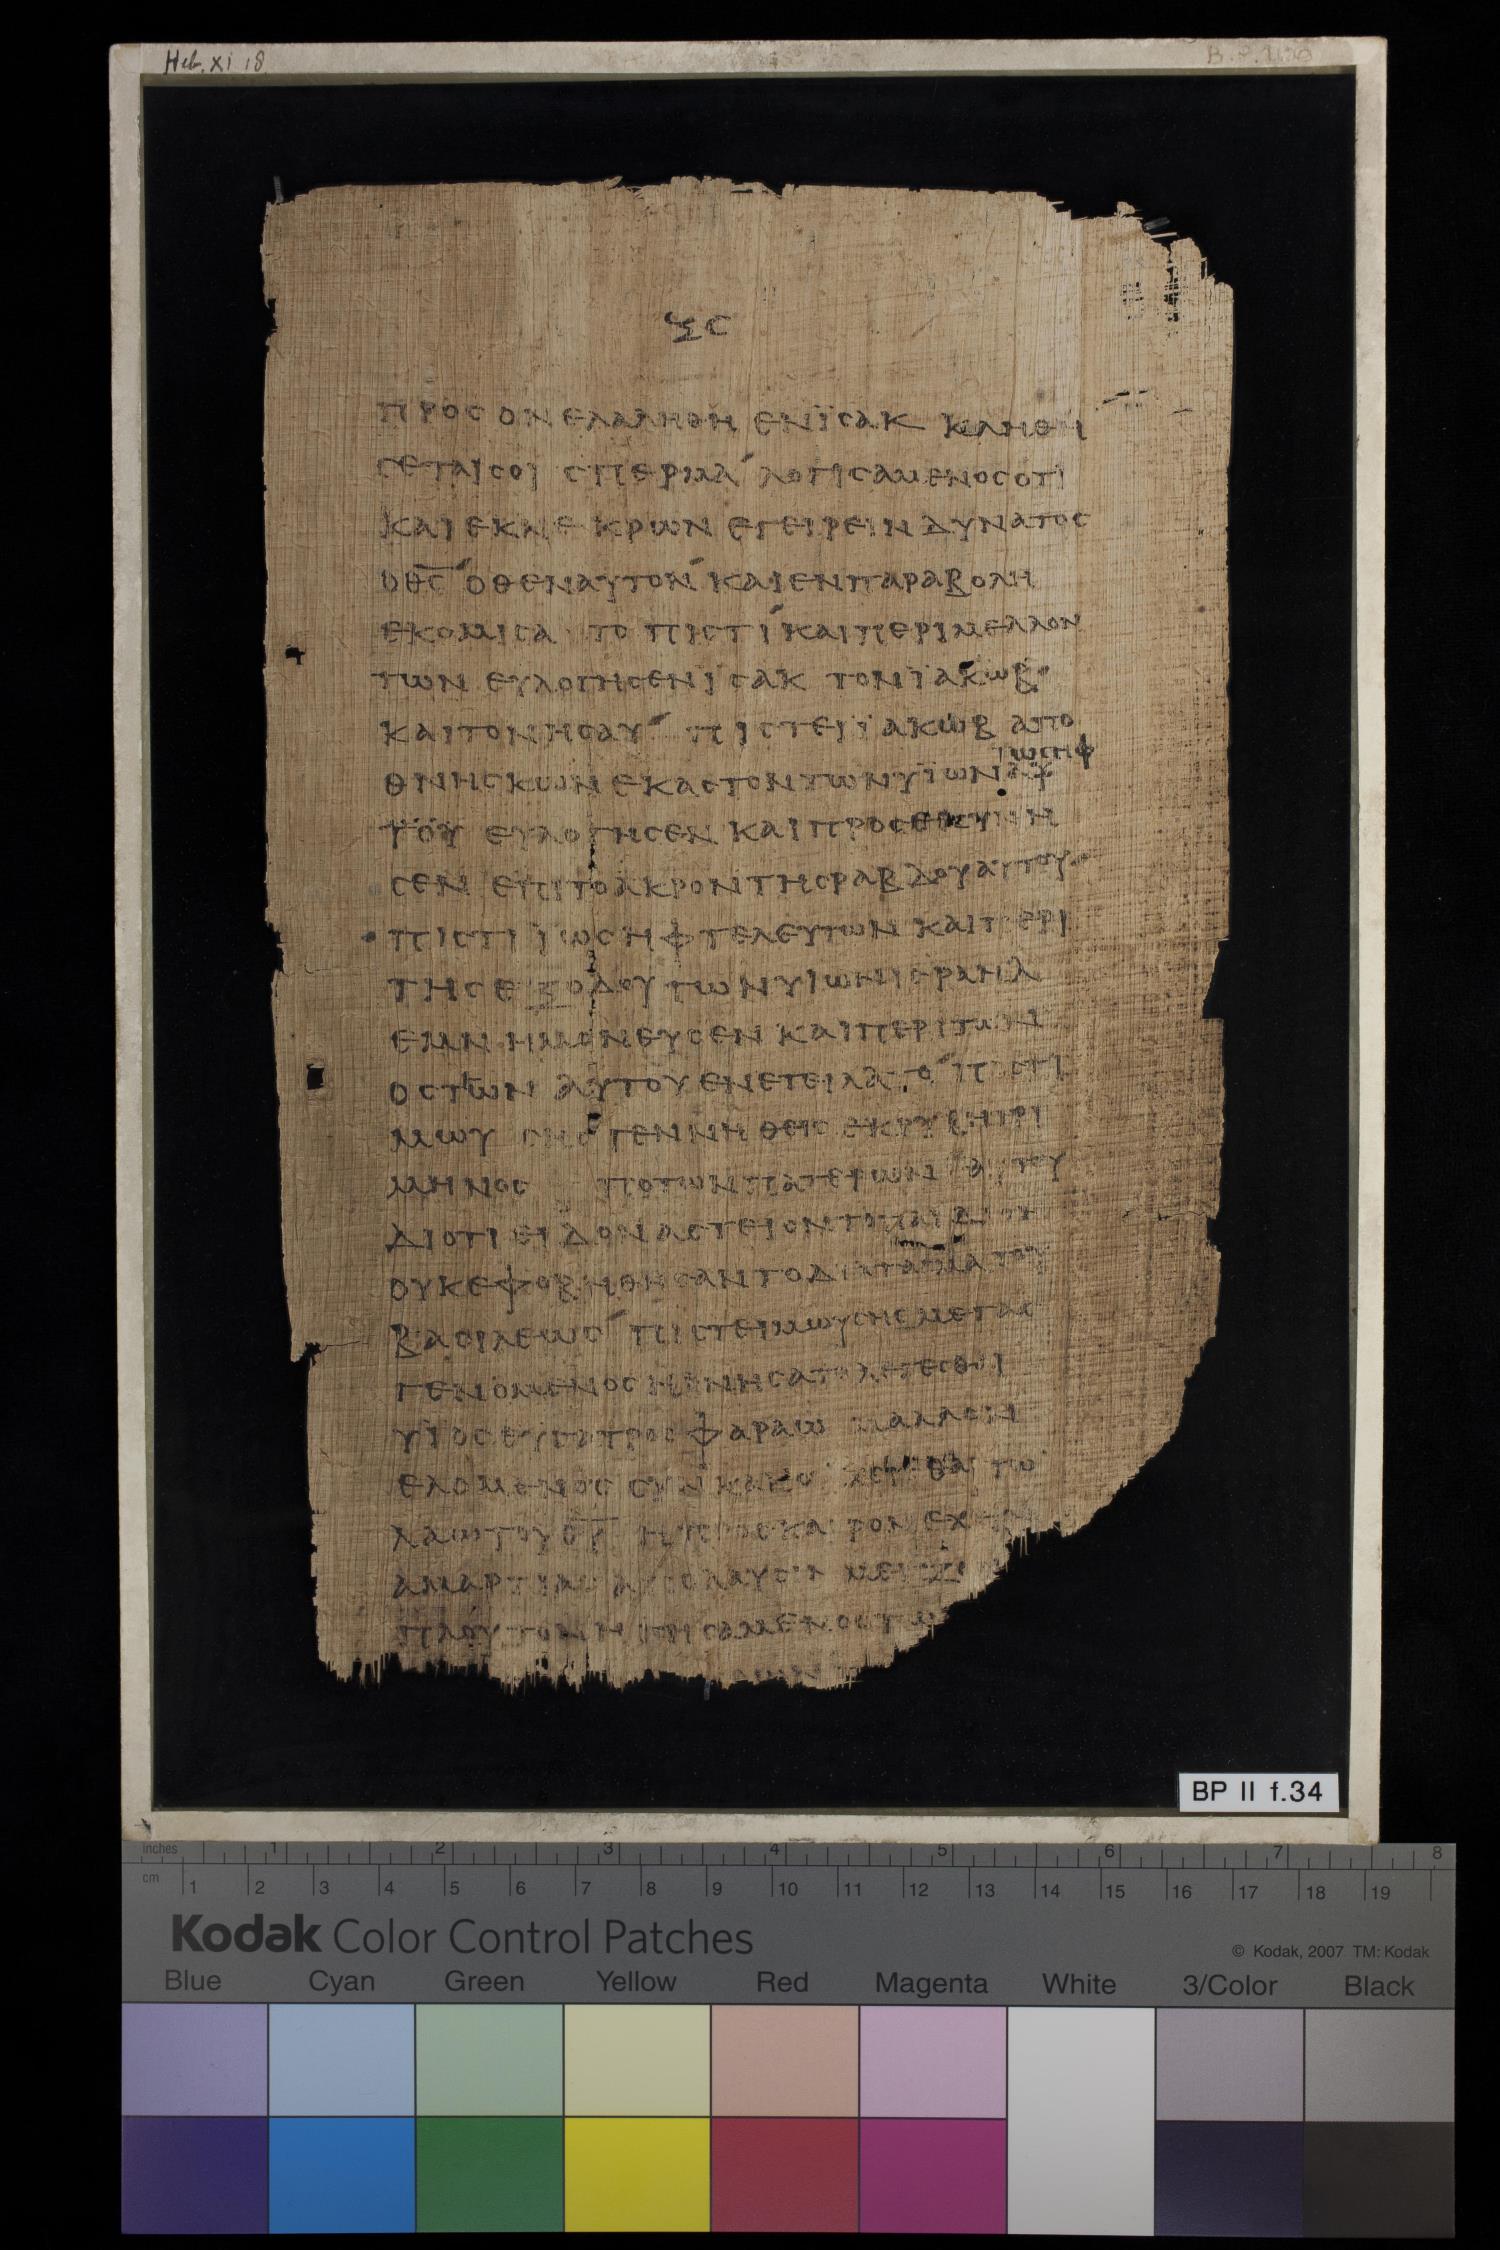 Heb. XI 18
ξϛ
προσ ον ελαληθη εν ϊσακ κληθη
σεται σοι σπερμα λογισαμενος οτι
και εκ νεκρων εγειρειν δυνατος
ο θς οθεν αυτον και εν παραβολη
εκομισατο πιστι και περι μελλον
των ευλογησεν ισακ τον ϊακωβ
και τον ησαυ πιστει ϊακωβ απο
ϊωσηφ
θνησκων εκαστον των υϊων
του ευλογησεν και προσεκυνη
σεν επι το ακρον της ραβδου αυτου
πιστι ϊωσηφ τελευτων και περι
της εξοδου των υιων ισραηλ
εμνημονευσεν και περι των
οστων αυτου ενετειλατο πιστι
μωυσης γεννηθεις εκρυβη τρι
μηνος υπο των πατερων αυτου
διοτι ειδον αστειον το παιδιον
ουκ εφοβηθησαν το διαταγμα του
βασιλεως πιστει μωυσης μεγας
γενομενος ηρνησατο λεγεσθαι
υϊος θυγατρος φαραω μαλλον
ελομενος συν τω
λαω του θυ η προσκαιρον εχειν
αμαρτιας απολαυσιν μειζονα
πλουτον ηγησαμενος τον
BP II f.34
inches 1 2 3 4 5 6 7 8
cm 1 2 3 4 5 6 7 8 9 10 11 12 13 14 15 16 17 18 19
Kodak Color Control Patches
© Kodak, 2007 TM: Kodak
Blue Cyan Green Yellow Red Magenta White 3/Color Black